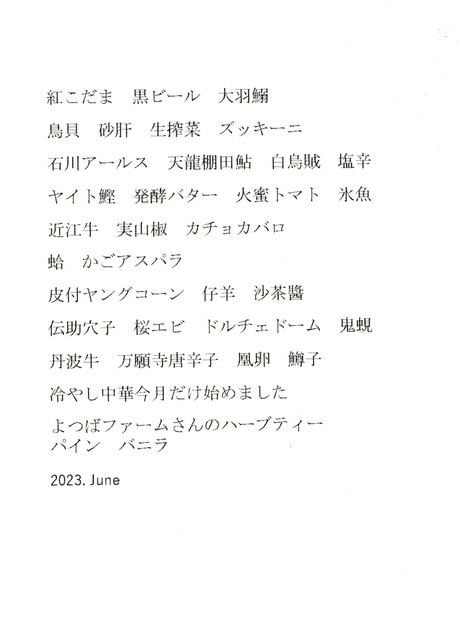 紅こだま　黒ビール　大羽鰯
鳥貝　砂肝　生搾菜　ズッキーニ
石川アールス　天龍棚田鮎　白烏賊　塩辛
ヤイト鰹　発酵バター　火蜜トマト　氷魚
近江牛　実山椒　カチョカバロ
蛤　かごアスパラ
皮付ヤングコーン　仔羊　沙茶醬
伝助穴子　桜エビ　ドルチェドーム　鬼蜆
丹波牛　万願寺唐辛子　凰卵　鱒子
冷やし中華今月だけ始めました
よつばファームさんのハーブティー
パイン　バニラ
2023. June